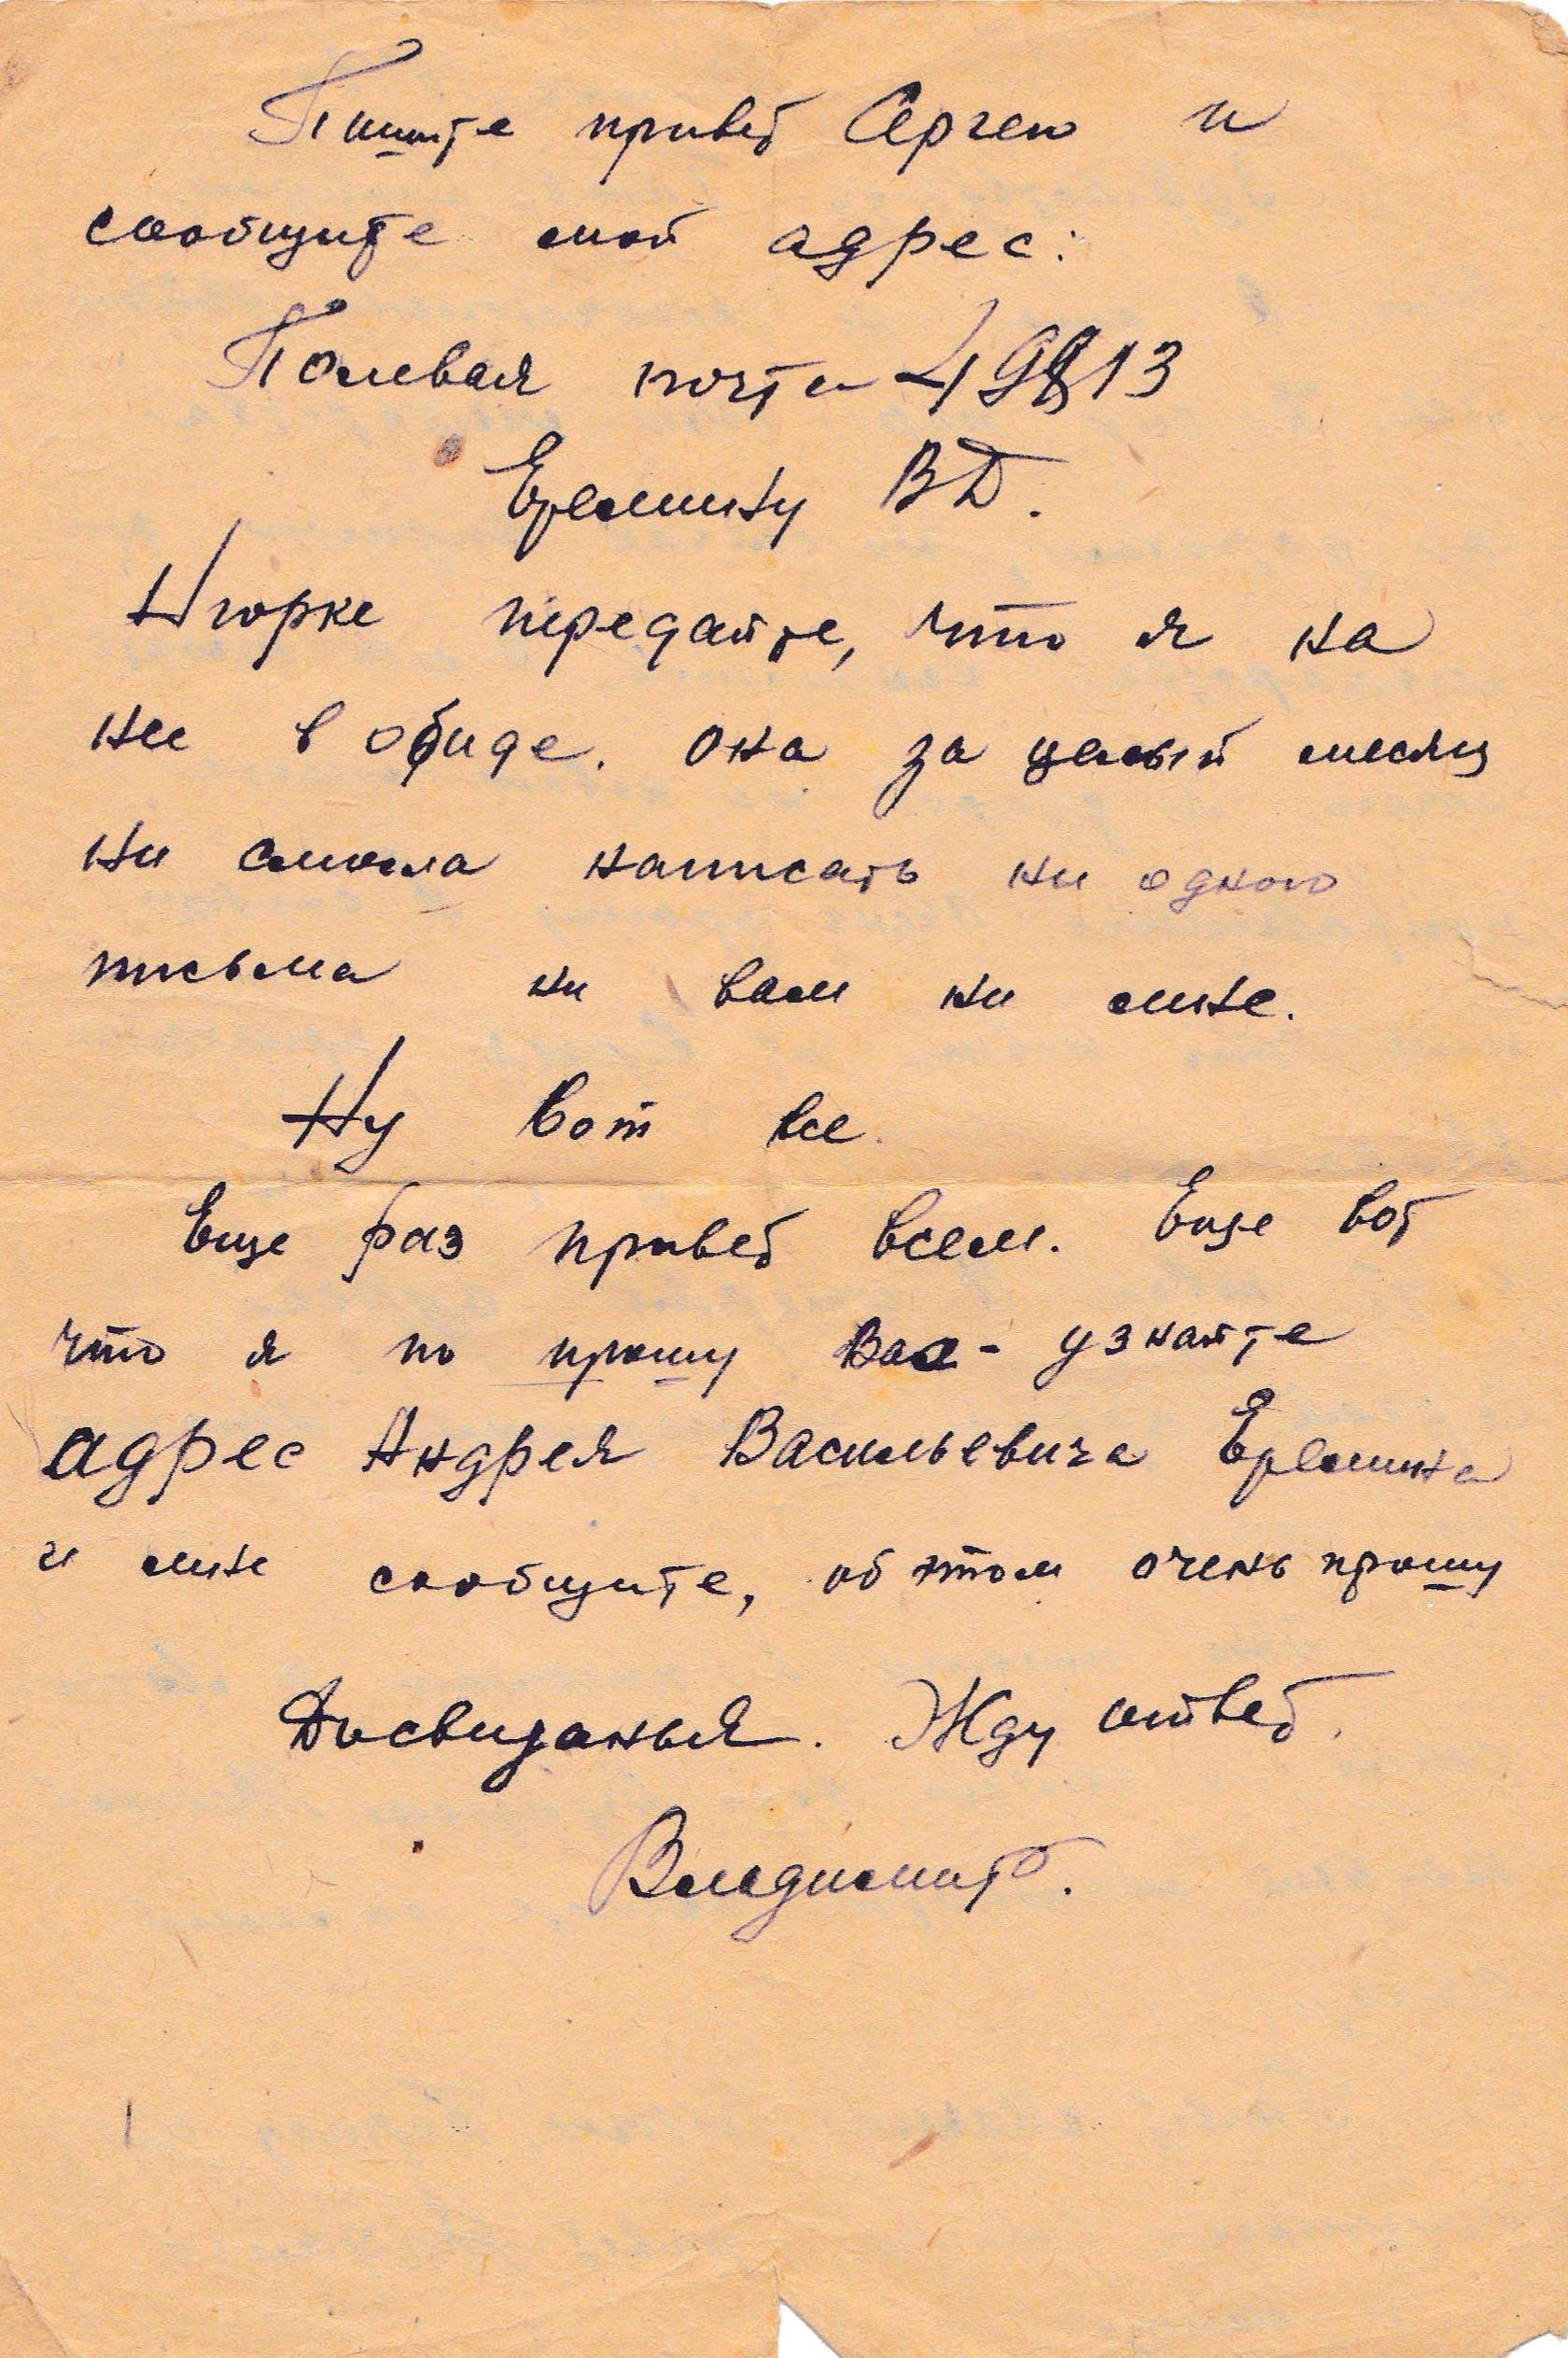 Пишите привет Сергею и
сообщите мой адрес:
Полевая почта
Еремину В Д.
Нюрке передайте, что я на
нее в обиде. Она за целый месяц
ни смогла написать ни одного
письма ни вам ни мне.
Ну вот все.
Еще раз привет всем. Еще вот
что я по прошу Вас - узнайте
адрес Андрея Васильевича Еремина
и мне сообщите, об этом очень прошу
Досвиданья. Жду ответ.
Владимир.